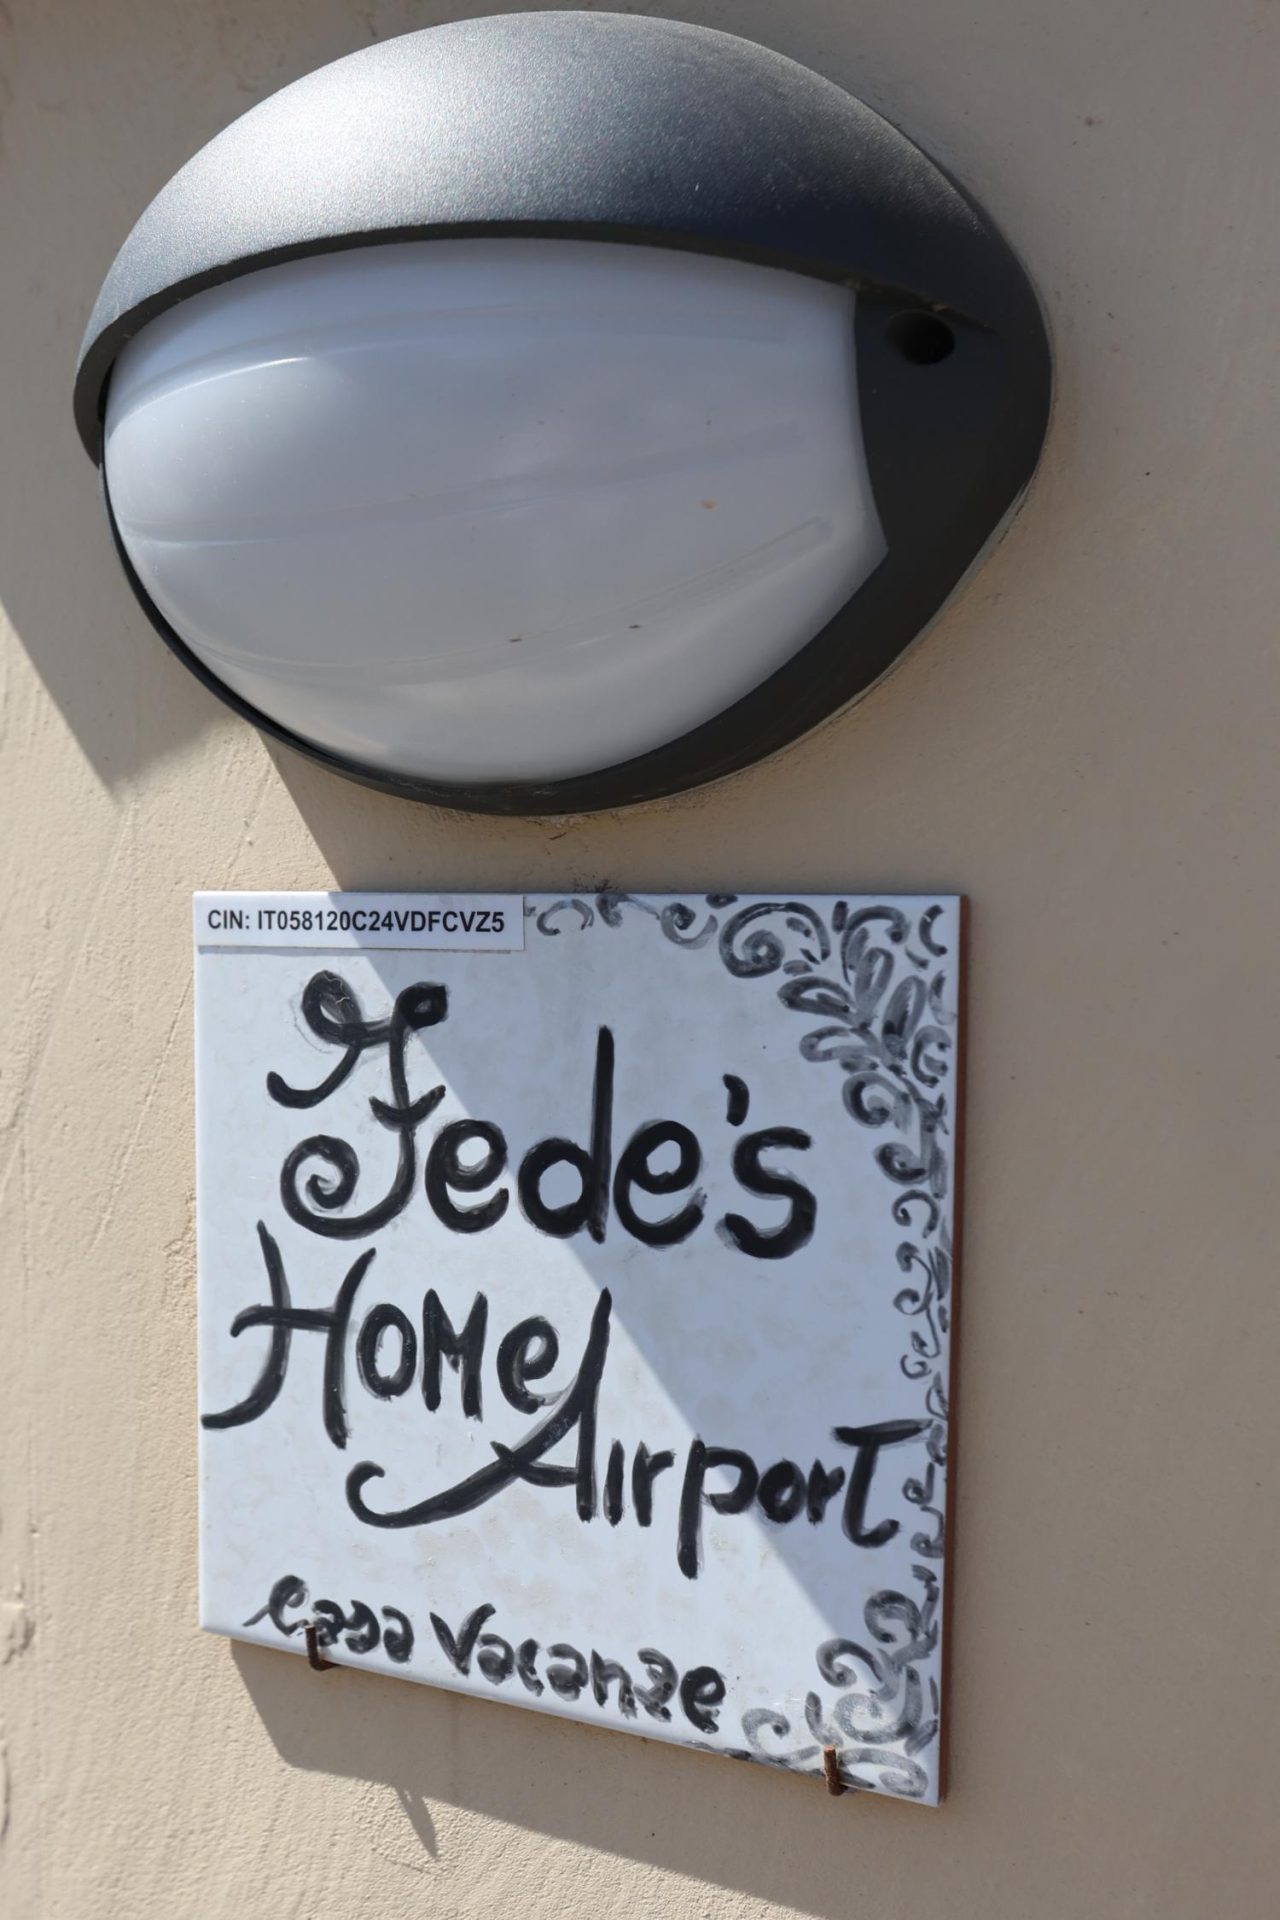 CIN: IT058120C24VDFCVZ5
Fede's
Home
Airport
Casa Vacanze